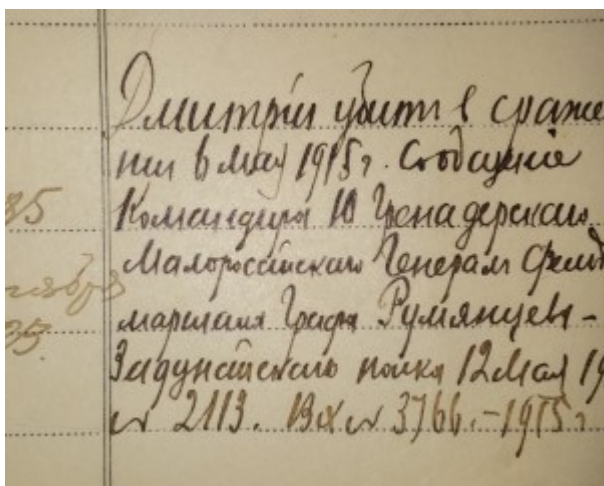 Дмитрій убитъ в сраже
нии в маѣ 1915г. Сообщеніе
35 Командира 10 Гренадерскаго
Малороссійскаго Генералъ Фельд
маршала Графа Румянцева-
35. Задунайскаго полка 12 Мая 19
№ 2113. Вх № 3766.-1915г